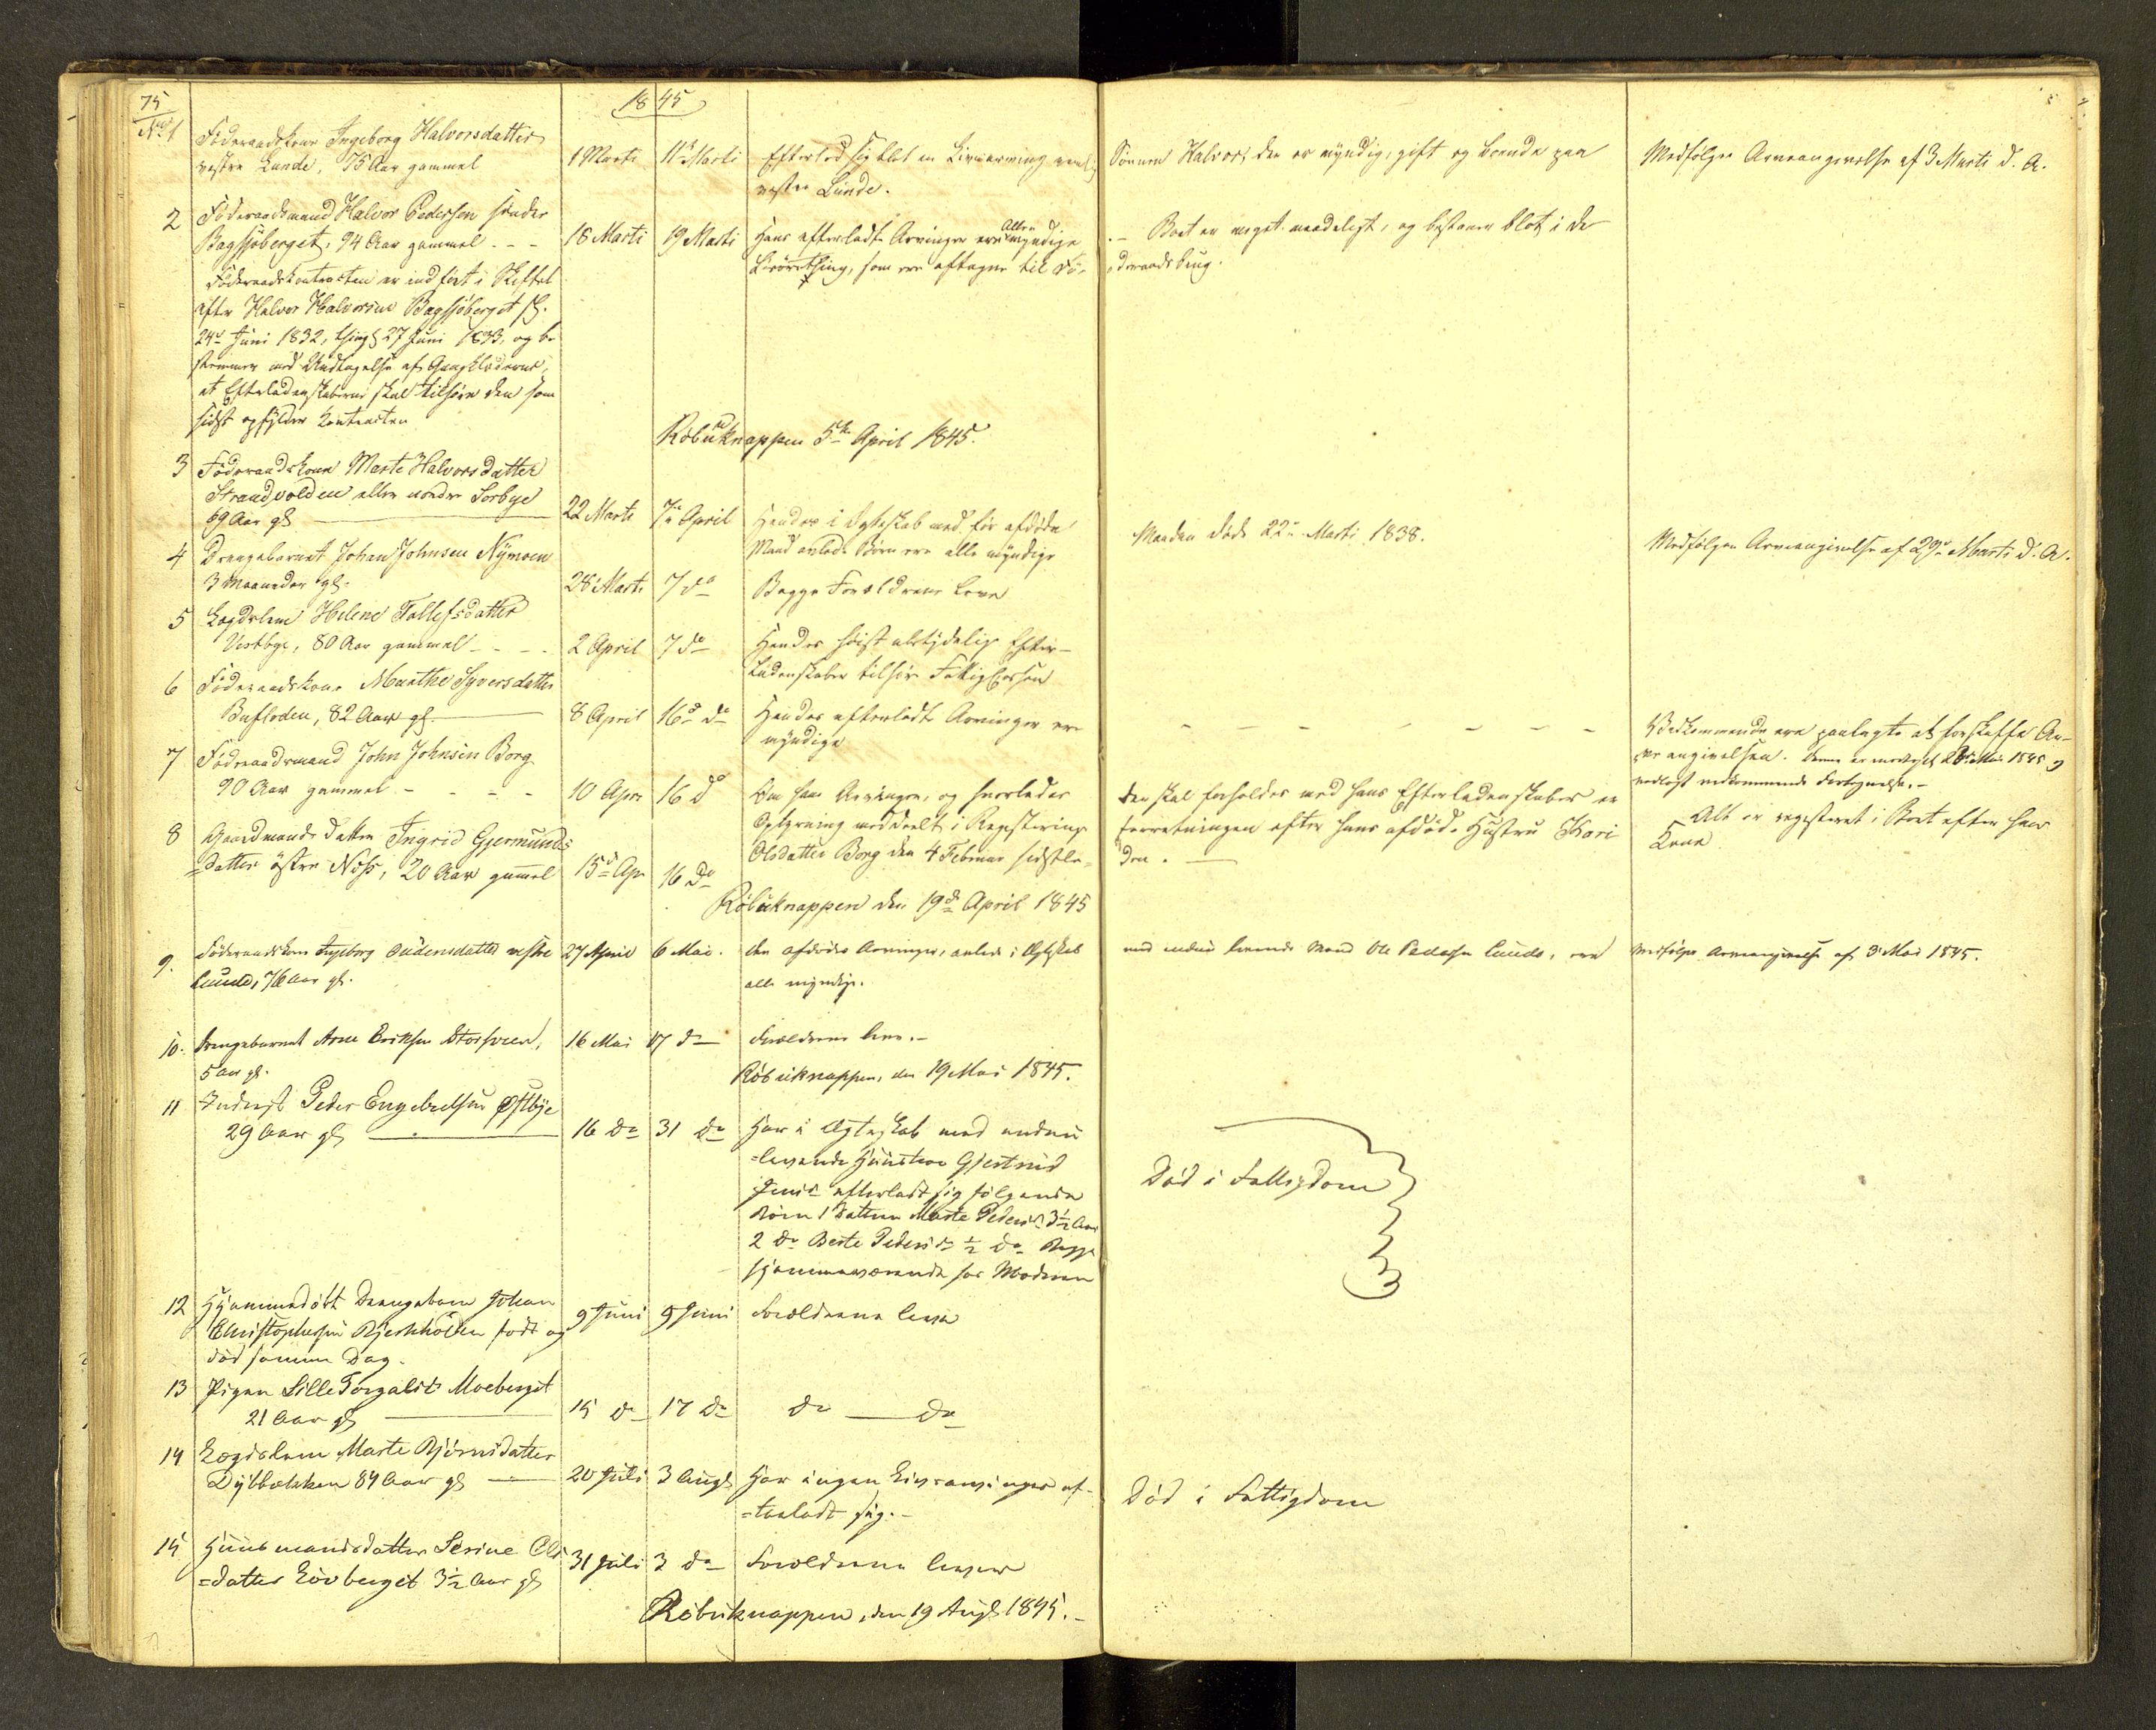 75
1845
No 1 Föderaadskone Ingeborg Halvorsdatter
vestre Lunde, 75 Aar gammel
1 Marti 11te Marti Efterlod sig blot en Livsarving
Sönnen Halvor, der er myndig, gift og boende paa
vestre Lunde.
Medfölger Arveangivelse af 3 Marti d. A.
2 Föderaadsmand Halvor Pedersen söndre
Bagsjöberget, 94 Aar gammel - - -
16 Marti 19 Marti Hans efterladte Arvinger ere Alle myndige
- Boet er meget maadeligt, og bestaaer blot i de
som ere aftagne til Fö-
deraadsbrug.
Föderaadskontracten er indfört i Skiftet
efter Halvor Halvorsen Bagsjöberget sl.
24de Juni 1832, thingl 27 Juni 1833, og be
stemmer med Undtagelse af Gangklæderne,
at Efterladenskaberne skal tilhöre den som
sidst opfylder Kontracten
Röbuknappen 5te April 1845.
3 Föderaadskone Marte Halvorsdatter
Strandvolden eller nordre Sorbye
69 Aar gl
22 Marti 7de April Hendes i Ægteskab med för afdöde
Mand avlede Börn ere alle myndige
Manden döde 22de Marti 1838.
Medfölger Arveangivelse af 29de Marti d. A.
4 Drengebarnet Johan Johnsen Nymoen
3 Maaneder gl.
28 Marti 7 do Begge Forældrene leve
5 Lægdslem Helene Tollefsdatter
Vestbye, 80 Aar gammel - - -
2 April 7 do Hendes höist ubetydelige Efter-
ladenskaber tilhöre Fattigkassen
6 Föderaadskone Marthe Syversdatter
Bufloden, 82 Aar gl.
8 April 16de do Hendes efterladte Arvinger ere
myndige
Vedkommende ere paalagte at forskaffe Ar-
veangivelsen. Denne er modtaget Mai 1845 og
vedlagt vedkommende Fortegnelse.-
7 Föderaadsmand John Johnsen Borg
90 Aar gammel - - - -
10 Apr 16 do Om hans Arvinger, og hvorledes
der skal forholdes med hans Efterladenskaber er
Oplysning meddeelt i Registrerings
forretningen efter hans afdöde Hustru Kari
Olsdatter Borg den 4 Februar sidstle-
den.
Alt er registreret i Boet efter hans
Kone
8 Gaardmands Datter Ingrid Gjermunds
-datter östre Næss, 20 Aar gammel
15de Apr 16 do
Röbuknappen den 19de April 1845
9. Föderaadskone Ingeborg Audensdatter vestre
Lunde, 76 Aar gl.
27 April 6 Mai. den afdödes Arvinger, avlede i Ægteskab
med endnu levende Mand Ole Pedersen Lunde, ere
alle myndige.
Medfölger Arveangivelse af 3 Mai 1845.
10. Drengebarnet Arne Eriksen
5 Aar gl.
16 Mai 17 do Forældrene leve.-
Röbuknappen, den 19 Mai 1845.
11 Inderst Peder Engebretsen Östbye
29 Aar gl
16 do 31 do Har i Ægteskab med endnu
-levende Hustrue Gjertrud
efterladt sig fölgende
Börn 1 Datter Marte Pedersd 3½ Aar
2 do Berte Pedersd ½ do Begge
hjemmeværende hos Moderen
Död i Fattigdom
12 Hjemmedöbt Drengebarn Johan
Christophersen födt og
död samme Dag.
9 Juni 9 Juni Forældrene leve
13 Pigen Lille Torgalsd Moeberget
21 Aar gl
15 do 17 do do do
14 Lægdslem Marte Björnsdatter
Dybbækken 84 Aar gl
20 Juli 3 Augl Har ingen Livsarvinger ef-
-terladt sig.-
Död i Fattigdom
15 Huusmandsdatter Serine Ols
-datter Lövberget 3½ Aar gl
31 Juli 3 do Forældrene lever
Röbuknappen, den 19 Augl 1845.-